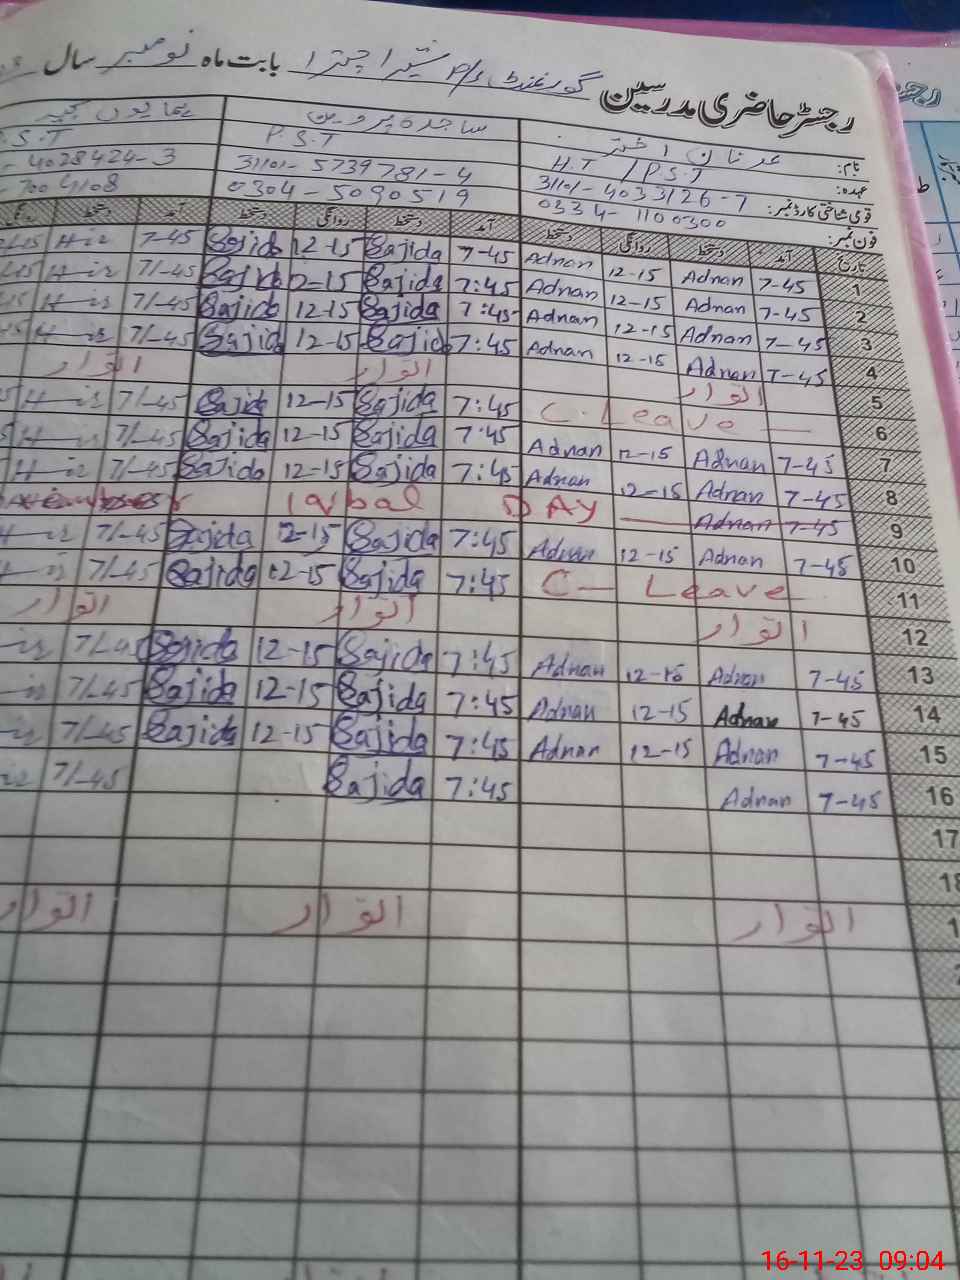 رجسٹر حاضری مدرسین گورنمنٹ P/S بابت ماہ نومبر سال
نام: عدنان اختر ساجدہ پروین
عہدہ: H.T / P.S.T P.S.T S.T
قومی شناختی کارڈ نمبر: 31101-4033126-7 31101-5739781-4 4028424-3
فون نمبر: 0334-1100300 0304-5090519
تاریخ آمد دستخط روانگی دستخط آمد دستخط روانگی دستخط آمد دستخط
1 7-45 Adnan 12-15 Adnan 7-45 Sajida 12-15 Sajida 7-45
2 7-45 Adnan 12-15 Adnan 7:45 Sajida 12-15 Sajida 7-45
3 7-45 Adnan 12-15 Adnan 7:45 Sajida 12-15 Sajida 7-45
4 7-45 Adnan 12-15 Adnan 7:45 Sajida 12-15 Sajida 7-45
5 اتوار اتوار اتوار
6 C. Leave 7:45 Sajida 12-15 Sajida 7-45
7 7-45 Adnan 12-15 Adnan 7:45 Sajida 12-15 Sajida 7-45
8 7-45 Adnan 12-15 Adnan 7:45 Sajida 12-15 Sajida 7-45
9 7-45 Adnan Iqbal DAY
10 7-45 Adnan 12-15 Adnan 7:45 Sajida 12-15 Sajida 7-45
11 C- Leave 7:45 Sajida 12-15 Sajida 7-45
12 اتوار اتوار اتوار
13 7-45 Adnan 12-15 Adnan 7:45 Sajida 12-15 Sajida 7-45
14 7-45 Adnan 12-15 Adnan 7:45 Sajida 12-15 Sajida 7-45
15 7-45 Adnan 12-15 Adnan 7:45 Sajida 12-15 Sajida 7-45
16 7-45 Adnan 7:45 Sajida 7-45
17
18
اتوار اتوار اتوار
16-11-23 09:04